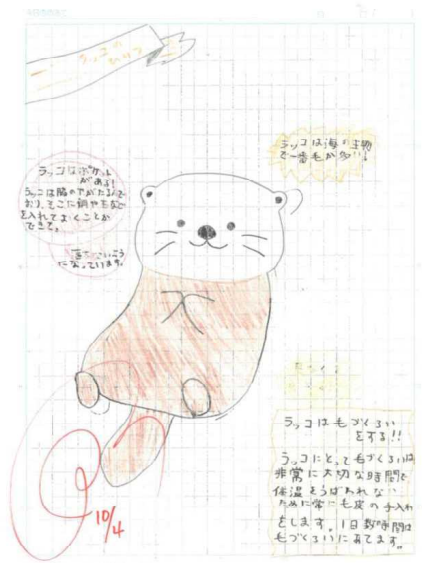 ラッコの
ひみつ
ラッコは海の生物
で一番毛が多い!
ラッコはポケット
がある!
ラッコは脇の下がたるんで
おり、そこに餌や石など
を入れておくことが
できて、
になっています。
ラッコは毛づくろい
をする!!
ラッコにとって毛づくろいは
非常に大切な時間で
体温をうばわれない
ために常に毛皮の手入れ
をします。1日数時間は
毛づくろいにあてます。
10/4